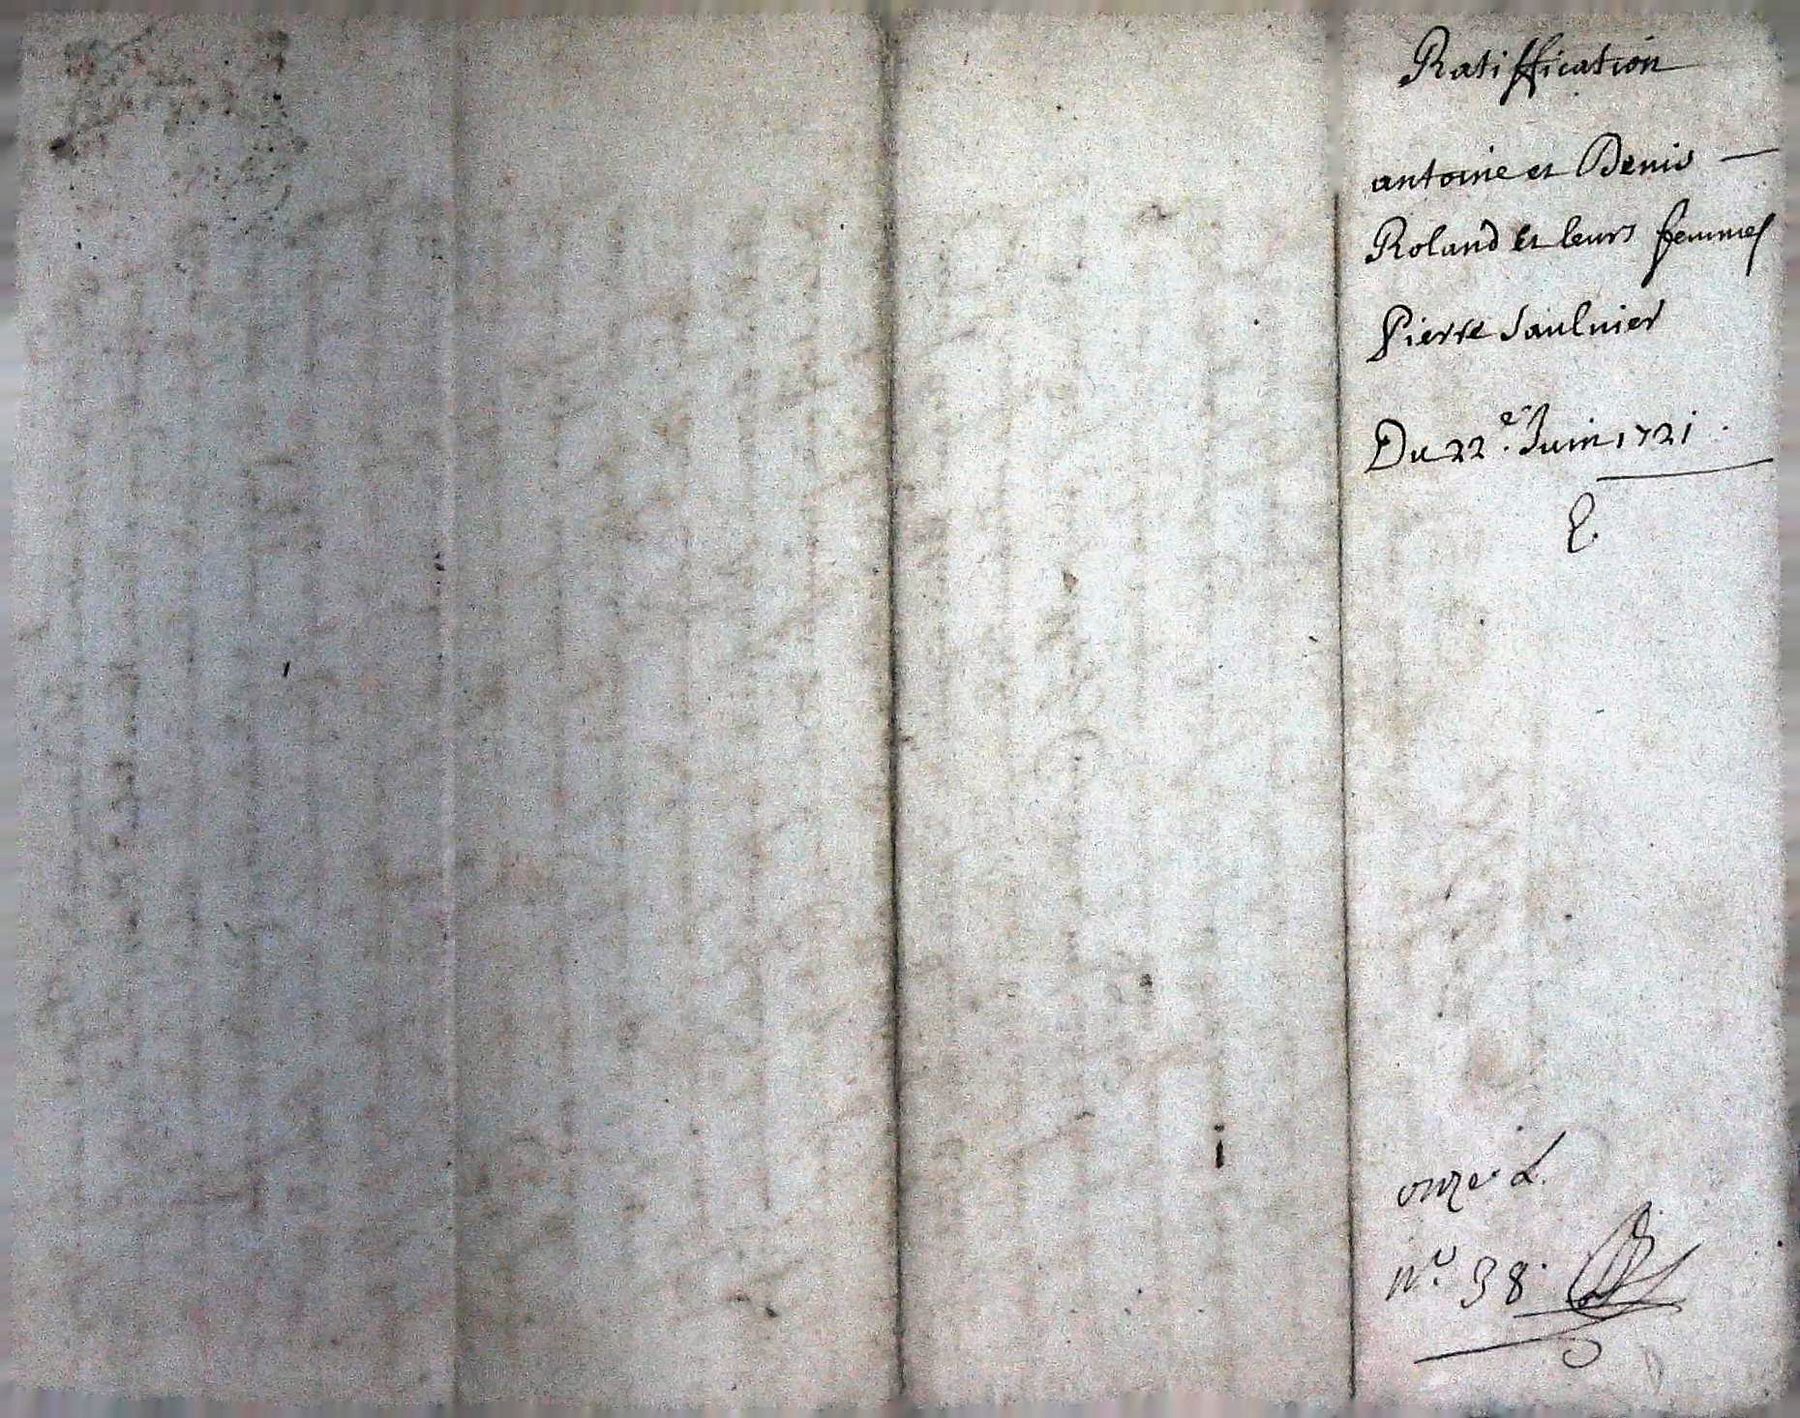 Ratiffication
antoine et Denis —
Roland et leurs femmes
Pierre Saulnier
Du 22.e Juin 1721.
E.
onze L.
N.o 38.